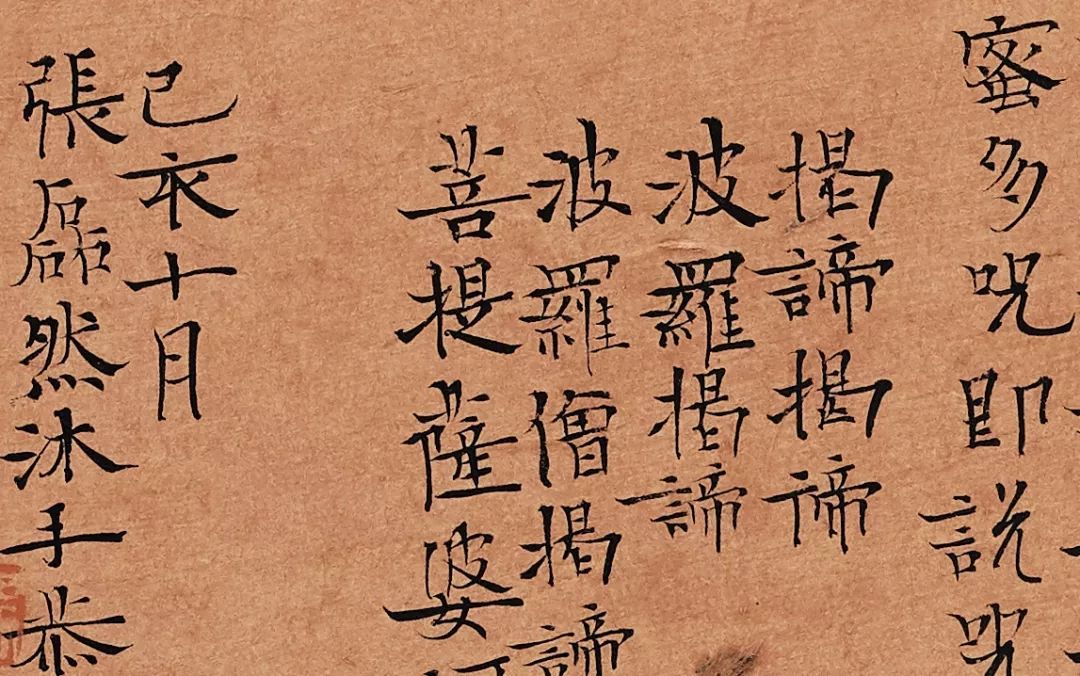 蜜多呪即說呪
揭諦揭諦
波羅揭諦
波羅僧揭諦
菩提薩婆
己亥十月
張磊然沐手恭